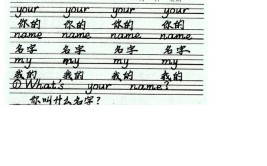 your your your your
你的 你的 你的 你的
name name name name
名字 名字 名字 名字
my my my my
我的 我的 我的 我的
①What's your name?
你叫什么名字?